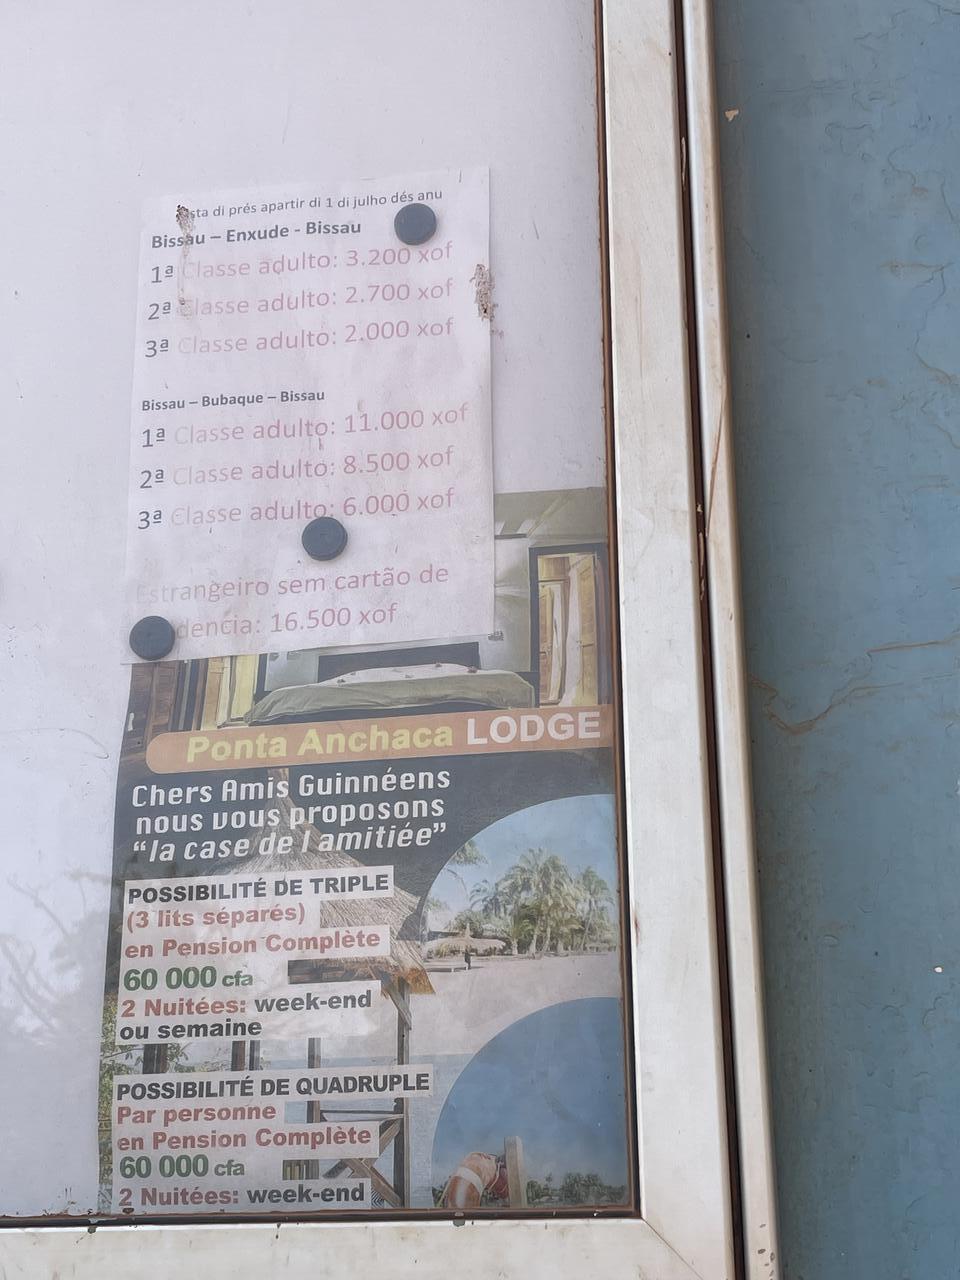 di prés apartir di 1 di julho dés anu
Bissau – Enxude - Bissau
1ª Classe adulto: 3.200 xof
2ª Classe adulto: 2.700 xof
3ª Classe adulto: 2.000 xof
Bissau – Bubaque – Bissau
1ª Classe adulto: 11.000 xof
2ª Classe adulto: 8.500 xof
3ª Classe adulto: 6.000 xof
Estrangeiro sem cartão de
16.500 xof
Ponta Anchaca LODGE
Chers Amis Guinnéens
nous vous proposons
“la case de l amitiée”
POSSIBILITÉ DE TRIPLE
(3 lits séparés)
en Pension Complète
60 000 cfa
2 Nuitées: week-end
ou semaine
POSSIBILITÉ DE QUADRUPLE
Par personne
en Pension Complète
60 000 cfa
2 Nuitées: week-end